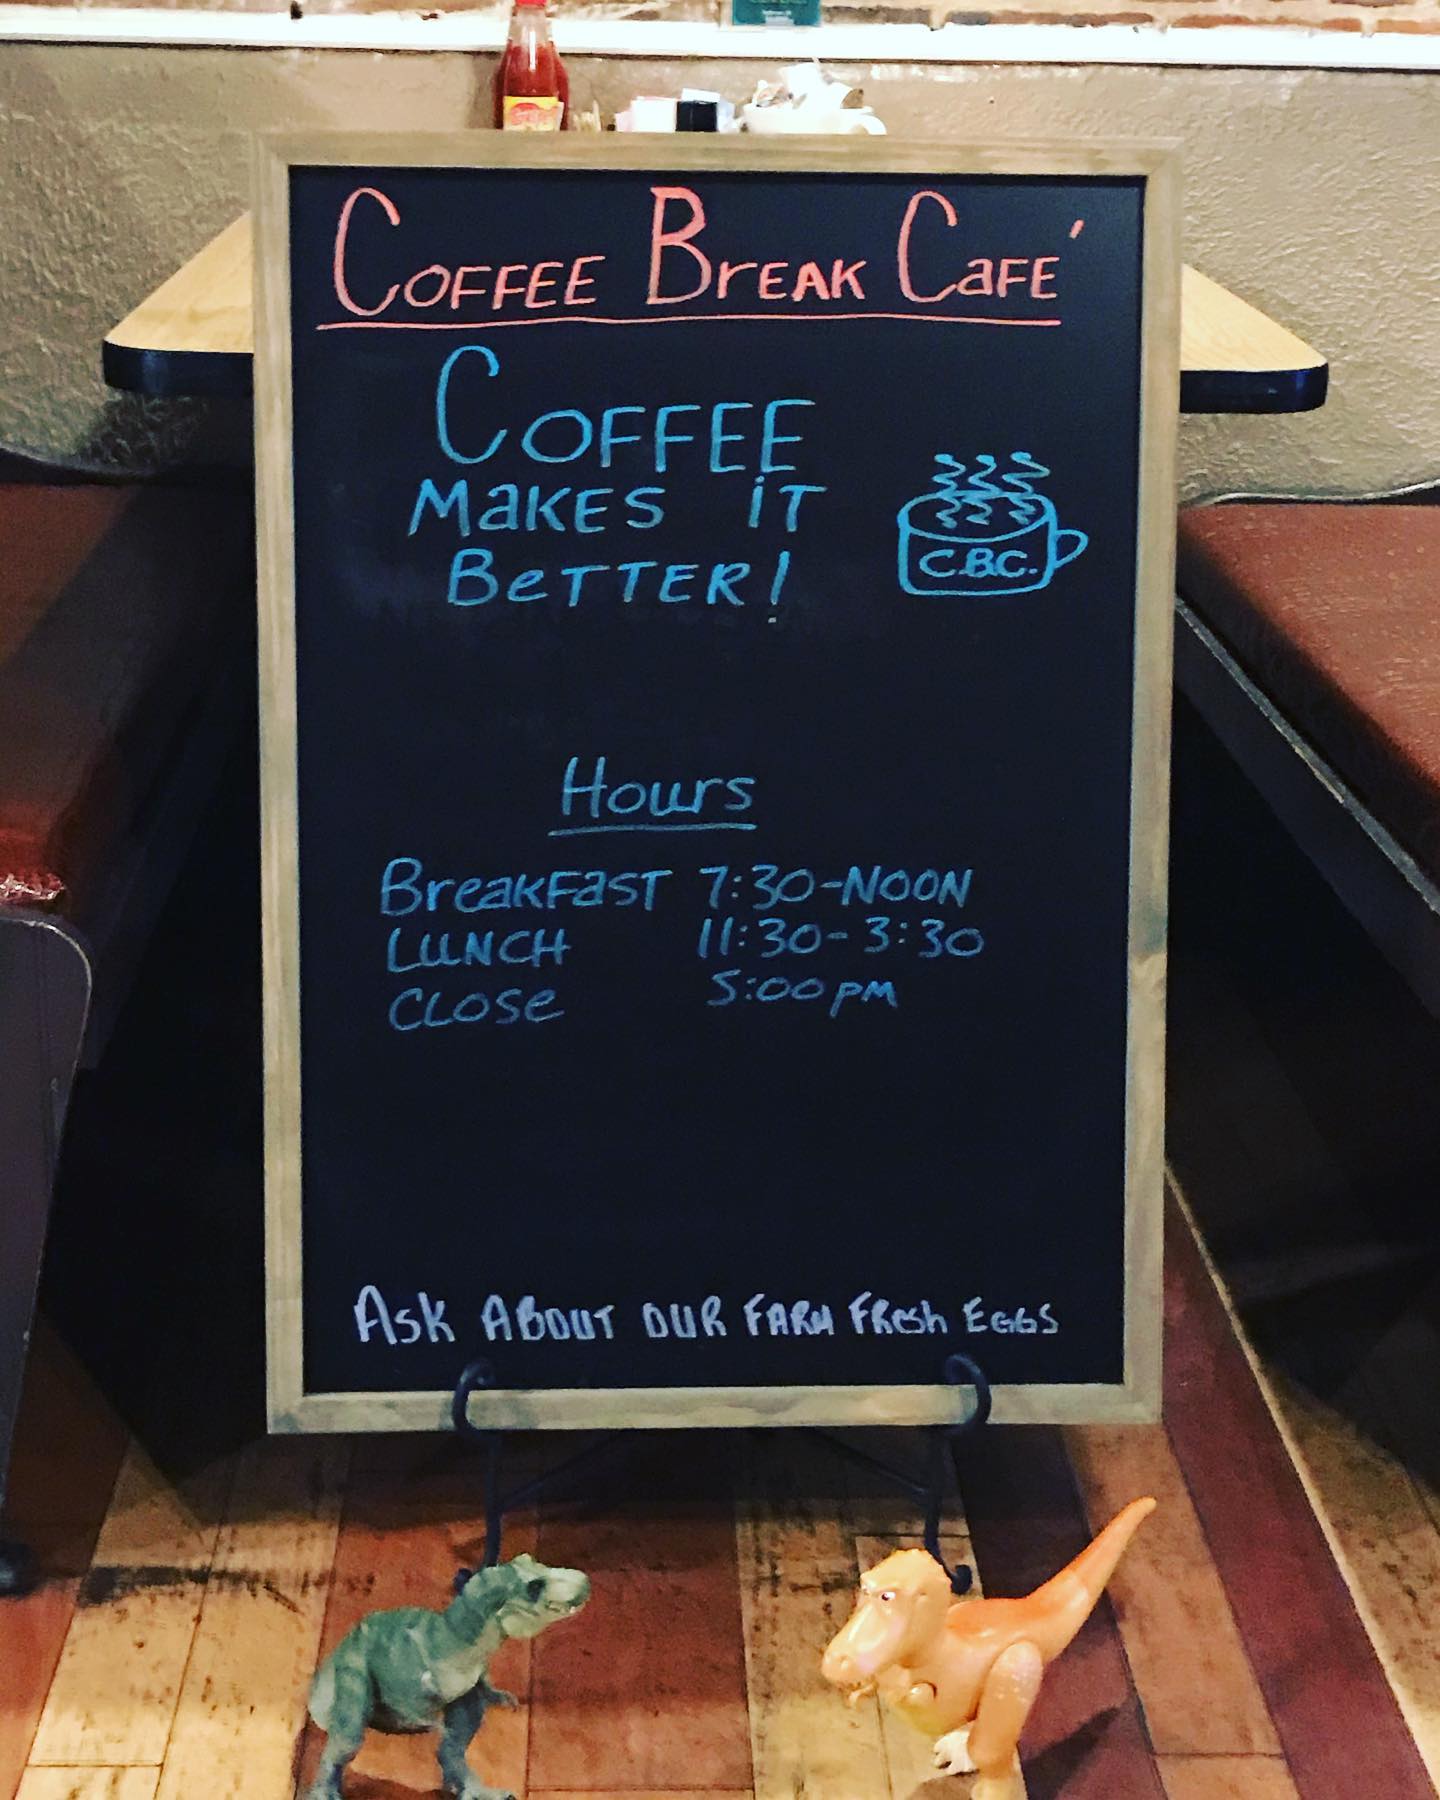 COFFEE BREAK CAFE´
COFFEE
MAKES iT
BETTER!
C.B.C.
Hours
BreakFast 7:30-NOON
LUNCH 11:30-3:30
CLOSE 5:00 PM
Ask About our Farm Fresh Eggs